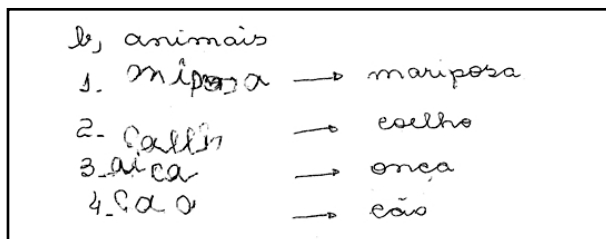 b, animais
1. miposa → mariposa
2- Callin → coelho
3. aica → onça
4. Cao → cão